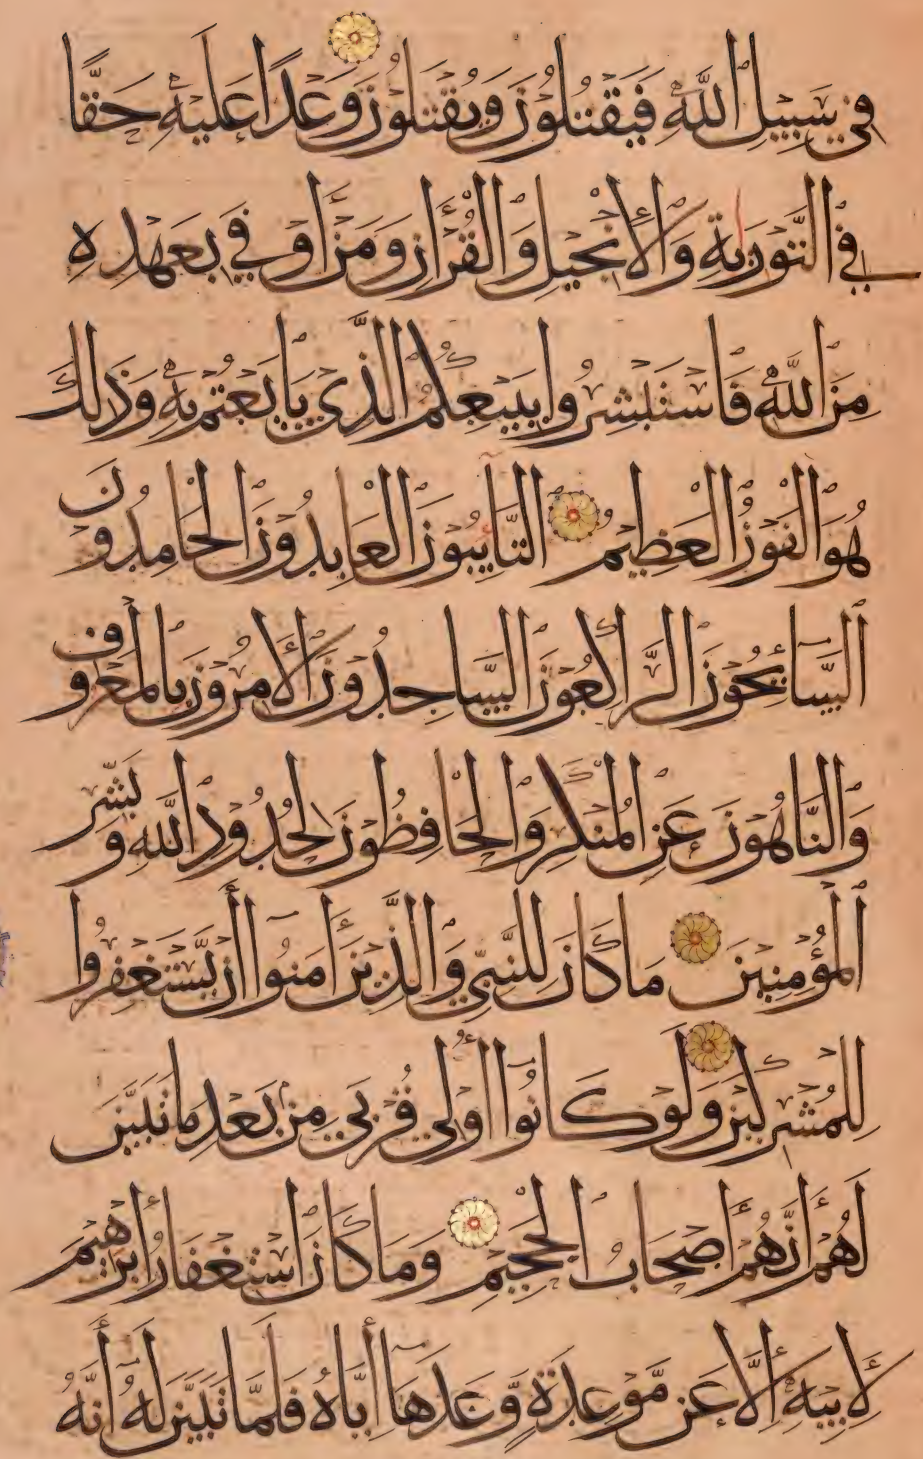 فِي سَبِيلِ اللَّهِ فَيَقْتُلُونَ وَيُقْتَلُونَ وَعْدًا عَلَيْهِ حَقًّا
فِي التَّوْرَيةِ وَالْإِنْجِيلِ وَالْقُرْءَانِ وَمَنْ أَوْفَي بِعَهْدِهِ
مِنَ اللَّهِ فَاسْتَبْشِرُوا بِبَيْعِكُمُ الَّذِي بَايَعْتُمْ بِهِ وَذَلِكَ
هُوَ الْفَوْزُ الْعَظِيمُ التَّايِبُونَ الْعَابِدُونَ الْحَامِدُونَ
السَّايِحُونَ الرَّاكِعُونَ السَّاجِدُونَ الْأَمِرُونَ بِالْمَعْرُوفِ
وَالنَّاهُونَ عَنِ الْمُنْكَرِ وَالْحَافِظُونَ لِحُدُودِ اللَّهِ وَبَشِّرِ
الْمُؤْمِنِينَ مَا كَانَ لِلنَّبِيِّ وَالَّذِينَ أَمَنُوا أَنْ يَّسْتَغْفِرُوا
لِلْمُشْرِكِينَ وَلَوْ كَانُوا أُولِي قُرْبَي مِنْ بَعْدِ مَا تَبَيَّنَ
لَهُمْ أَنَّهُمْ أَصْحَابُ الْجَحِيمِ وَمَا كَانَ اسْتِغْفَارُ إِبْرَهِيمَ
لِأَبِيهِ إِلَّا عَنْ مَّوْعِدَةٍ وَّعَدَهَا إِيَّاهُ فَلَمَّا تَبَيَّنَ لَهُ أَنَّهُ